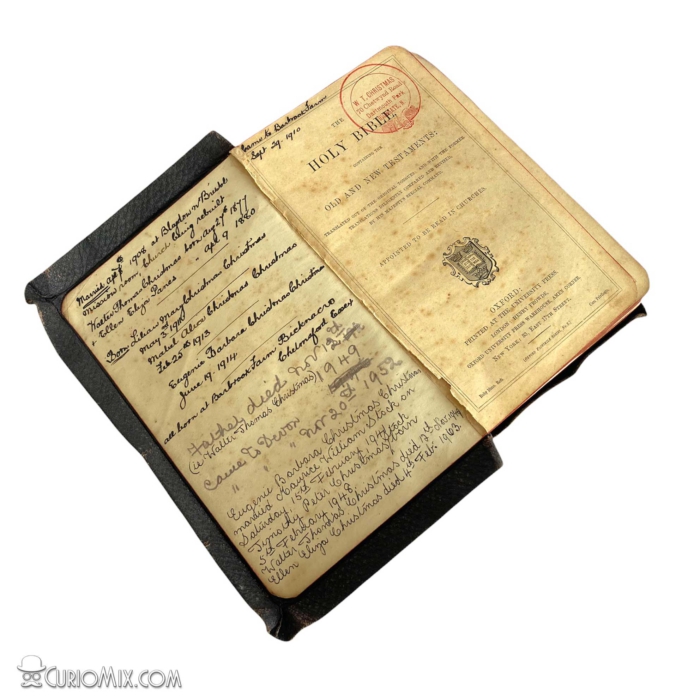 Married Apl 1908 at Blagdon Nr Bristol
mission room, church being rebuilt
Walter Thomas Christmas born Aug 27th 1877
& Ellen Eliza Panes - Apl 9 1880
Born Lilian May Christmas Christmas
May 3rd 1910
Mabel Alice Christmas Christmas
Feb 25th 1913
Eugenie Barbara Christmas Christmas
June 19. 1914.
all born at Barbrook Farm Bicknacre
Chelmsford Essex
Father died Nov 12th
(ie Walter Thomas Christmas) 1949
Came to Devon
" " " Nov 20th 1952
Eugenie Barbara Christmas Christmas
married Maurice William Stock on
Saturday, 15th February 1947
Timothy Peter Christmas Stock born
5th February 1948.
Walter Thomas Christmas died 12th Nov. 1949
Ellen Eliza Christmas died 4th Feb. 1963.
Came to Barbrook Farm
Sept 29. 1910
W. T. CHRISTMAS
70 Chetwynd Road
Dartmouth Park
THE
HOLY BIBLE,
CONTAINING THE
OLD AND NEW TESTAMENTS:
TRANSLATED OUT OF THE ORIGINAL TONGUES, AND WITH THE FORMER
TRANSLATIONS DILIGENTLY COMPARED AND REVISED,
BY HIS MAJESTY'S SPECIAL COMMAND.
APPOINTED TO BE READ IN CHURCHES.
OXFORD:
PRINTED AT THE UNIVERSITY PRESS
LONDON: HENRY FROWDE,
OXFORD UNIVERSITY PRESS WAREHOUSE, AMEN CORNER
New York:
CurioMix.com